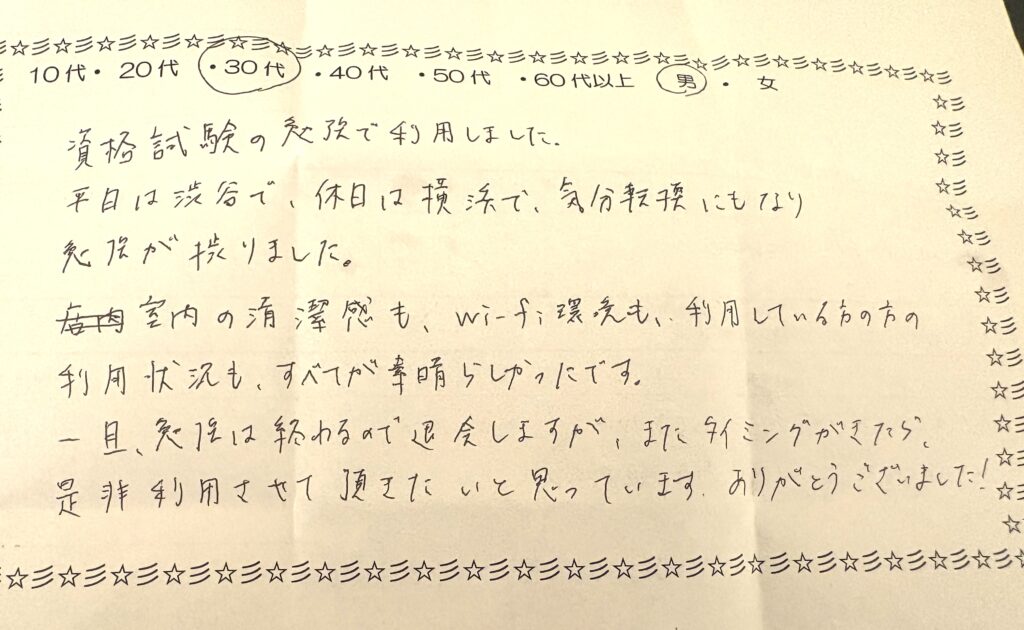 10代・20代・30代・40代・50代・60代以上 男・女
資格試験の勉強で利用しました.
平日は渋谷で、休日は横浜で、気分転換にもなり
勉強が捗りました。
店内室内の清潔感も、wi-fi環境も、利用している方の方の
利用状況も、すべてが素晴らしかったです。
一旦、勉強は終わるので退会しますが、またタイミングがきたら、
是非利用させて頂きたいと思っています. ありがとうございました!